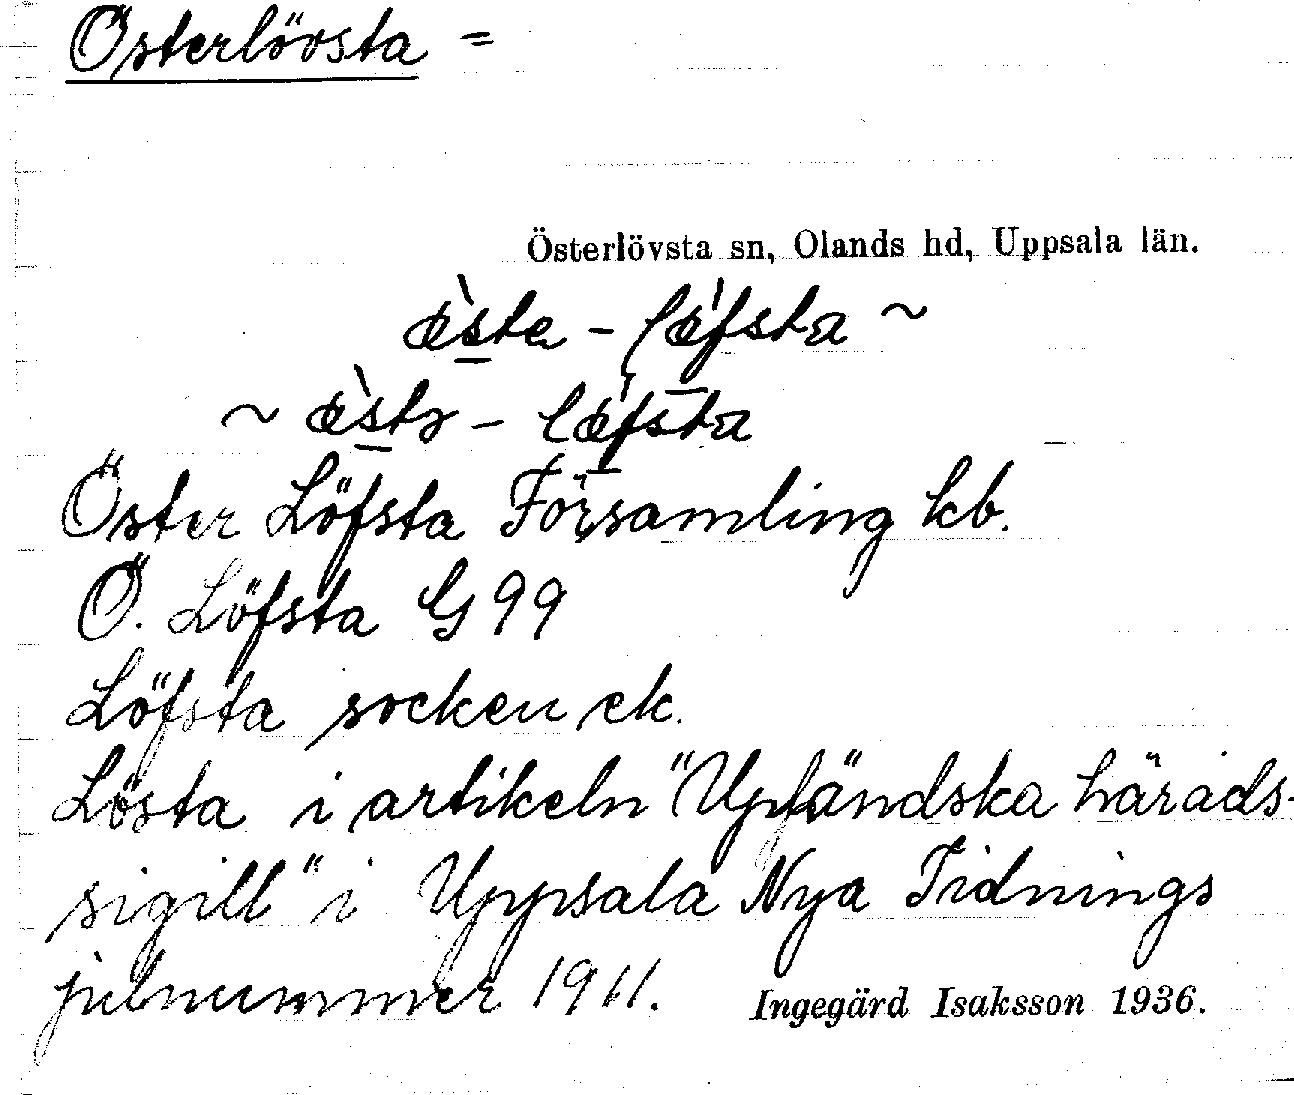 Österlövsta =
Österlövsta sn, Olands hd, Uppsala län.
Öster Löfsta Församling kb.
Ö. Löfsta G 99
Löfsta socken ek.
Lösta i artikeln "Upländska härads-
sigill" i Uppsala Nya Tidnings
julnummer 1911.
Ingegärd Isaksson 1936.